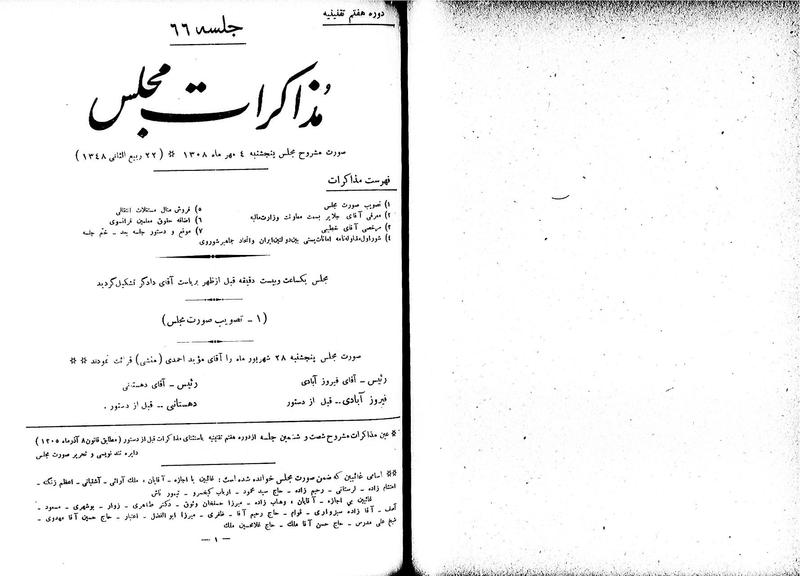 دوره هفتم تقنینیه
جلسه ۶۶
مذاکرات مجلس
صورت مشروح مجلس پنجشنبه ۴ مهر ماه ۱۳۰۸ * (۲۲ ربیع الثانی ۱۳۴۸)
فهرست مذاکرات
۱) تصویب صورت مجلس
۲) معرفی آقای جلایر بسمت معاونت وزارت مالیه
۳) مرخصی آقای خطیبی
۴) شور اول مقاوله‌نامه امانات پستی بین دولتین ایران و اتحاد جماهیر شوروی
۵) فروش منال مستغلات انتقالی
۶) اضافه حقوق معلمین فرانسوی
۷) موقع و دستور جلسه بعد - ختم جلسه
مجلس یکساعت و بیست دقیقه قبل از ظهر بریاست آقای دادگر تشکیل گردید
(۱ - تصویب صورت مجلس)
صورت مجلس پنجشنبه ۲۸ شهریور ماه را آقای مؤید احمدی (منشی) قرائت نمودند **
رئیس - آقای فیروز آبادی
فیروز آبادی - قبل از دستور
رئیس - آقای دهستانی
دهستانی - قبل از دستور .
* عین مذاکرات مشروح شصت و ششمین جلسه از دوره هفتم تقنینیه باستثنای مذاکرات قبل از دستور (مطابق قانون ۸ آذر ماه ۱۳۰۵)
دایره تند نویسی و تحریر صورت مجلس
** اسامی غائبین که ضمن صورت مجلس خوانده شده است : غائبین با اجازه - آقایان ، ملک آرائی - آشتیانی - اعظم زنگنه -
اعتصام زاده - لرستانی - رحیم زاده - حاج سید محمود - ارباب کیخسرو - تیمور تاش
غائبین بی اجازه - آقایان ، وهاب زاده - میرزا حسنخان وثوق - دکتر طاهری - زوار - بوشهری - مسعود -
آصف - آقا زاده سبزواری - قوام - حاج رحیم آقا - ظفری - میرزا ابوالفضل - اعتبار - حاج حسین آقا مهدوی -
شیخ علی مدرس - حاج حسن آقا ملک - حاج غلامحسین ملک
- ۱ -